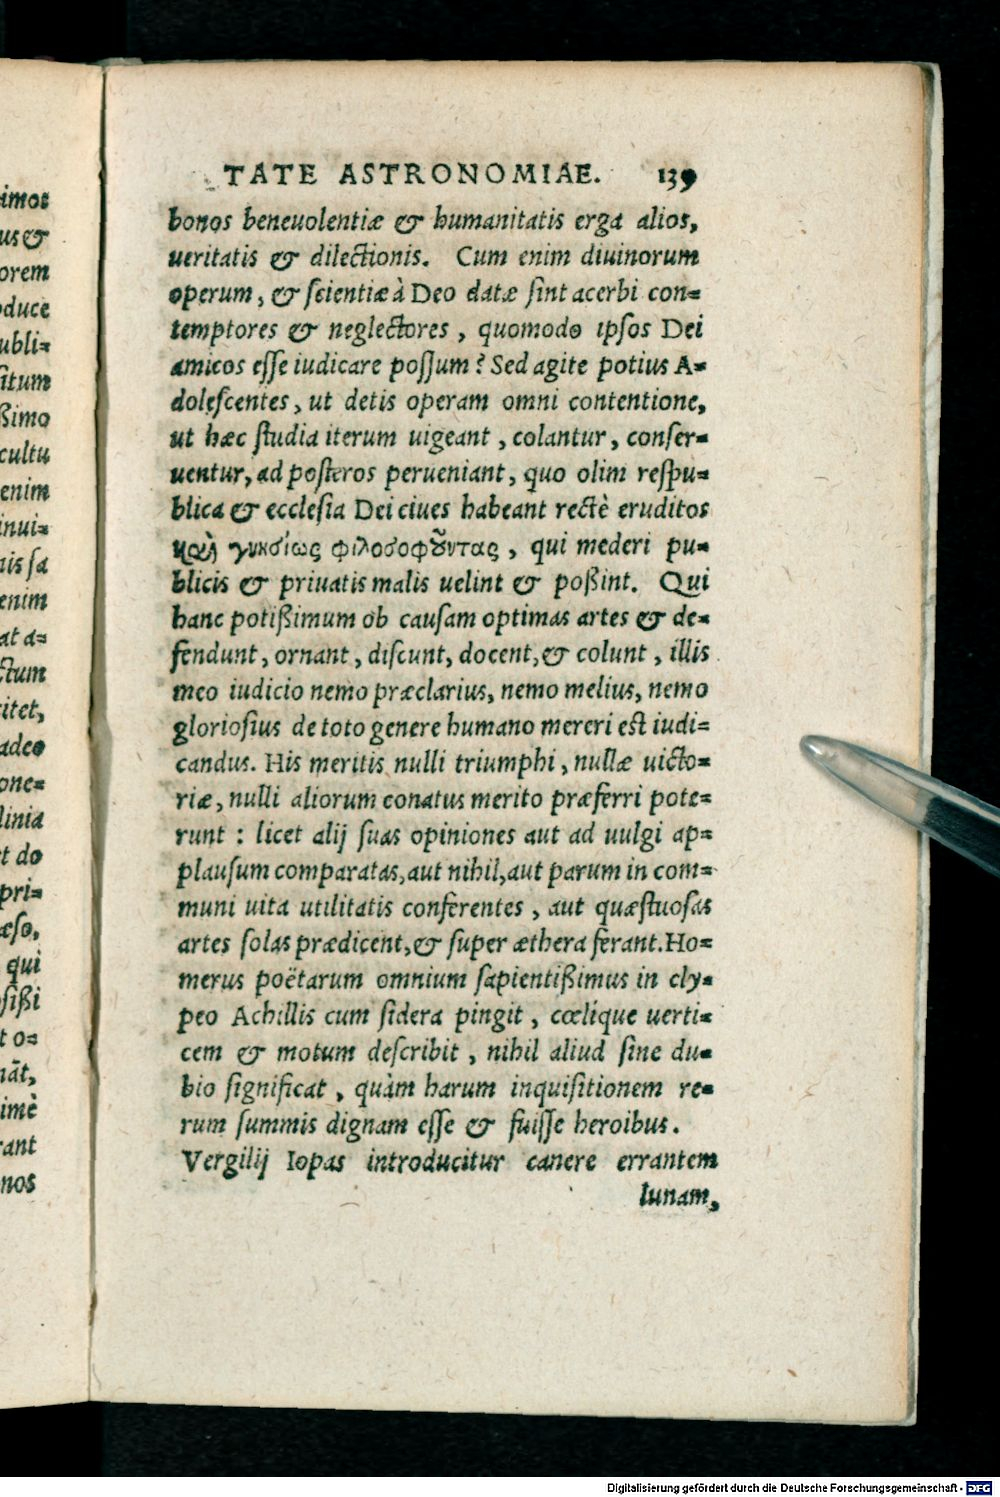 TATE ASTRONOMIAE. 139
bonos beneuolentiæ & humanitatis erga alios,
ueritatis & dilectionis. Cum enim diuinorum
operum, & scientiæ à Deo datæ sint acerbi con=
temptores & neglectores, quomodo ipsos Dei
amicos esse iudicare possum? Sed agite potius A=
dolescentes, ut detis operam omni contentione,
ut hæc studia iterum uigeant, colantur, conser=
uentur, ad posteros perueniant, quo olim respu=
blica & ecclesia Dei ciues habeant rectè eruditos
καὶ γνησίως φιλοσοφοῦντας, qui mederi pu=
blicis & priuatis malis uelint & poßint. Qui
hanc potißimum ob causam optimas artes & de=
fendunt, ornant, discunt, docent, & colunt, illis
meo iudicio nemo præclarius, nemo melius, nemo
gloriosius de toto genere humano mereri est iudi=
candus. His meritis nulli triumphi, nullæ uicto=
riæ, nulli aliorum conatus merito præferri pote=
runt: licet alij suas opiniones aut ad uulgi ap=
plausum comparatas, aut nihil, aut parum in com=
muni uita utilitatis conferentes, aut quæstuosas
artes solas prædicent, & super æthera ferant. Ho=
merus poëtarum omnium sapientißimus in cly=
peo Achillis cum sidera pingit, cœlique uerti=
cem & motum describit, nihil aliud sine du=
bio significat, quàm harum inquisitionem re=
rum summis dignam esse & fuisse heroibus.
Vergilij Iopas introducitur canere errantem
lunam,
imos
us &
orem
oduce
ubli=
situm
ßimo
cultu
enim
inui=
nis sa
enim
at a=
ctum
itet,
adeo
one=
linia
t do
pri=
æso,
qui
sißi
t o=
nãt,
imè
rant
nos
Digitalisierung gefördert durch die Deutsche Forschungsgemeinschaft - DFG